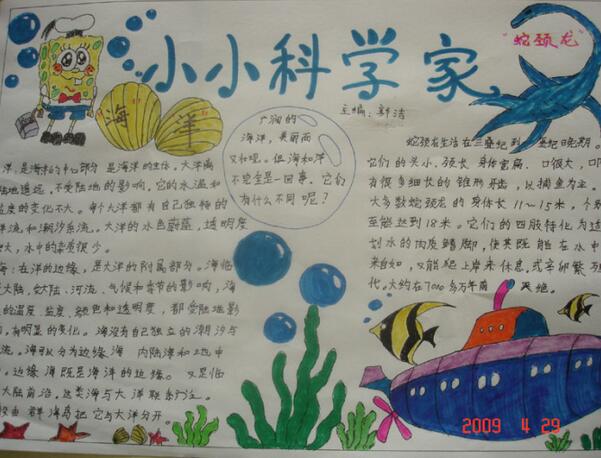 小小科学家
"蛇颈龙"
海洋
主编:
广阔的
海洋,美丽而
又和暖。但海和洋
不完全是一回事,它们
有什么不同呢?
洋,是海洋的中心部分 是海洋的主体。大洋离
陆地遥远,不受陆地的影响,它的水温和
盐度的变化不大。每个大洋都有自己独特的
洋流和潮汐系流。大洋的水色蔚蓝,透明度
大,水中的杂质很少。
海:在洋的边缘,是大洋的附属部分。海临
大陆,受大陆、河流、气候和季节的影响,海
的温度、盐度、颜色和透明度,都受陆地影
有明显的变化。海没有自己独立的潮汐与
流。海可以分为边缘海 内陆海和地中
边缘海既是海洋的边缘。又是临
大陆前沿。这类海与大洋联系广泛。
般由 群海岛把它与大洋分开。
蛇颈龙生活在三叠纪到 垩纪晚期。
它们的头小、颈长 身体宽扁、口很大,
有很多细长的锥形牙齿,以捕鱼为主。
大多数蛇颈龙的身体长11~15米,个别
至能达到18米。它们的四肢特化为适
划水的肉质鳍脚,使其既能在水中
来自如,又能爬上岸来休息。或产卵繁殖
代。大约在7000多万年前 灭绝。
2009 4 29